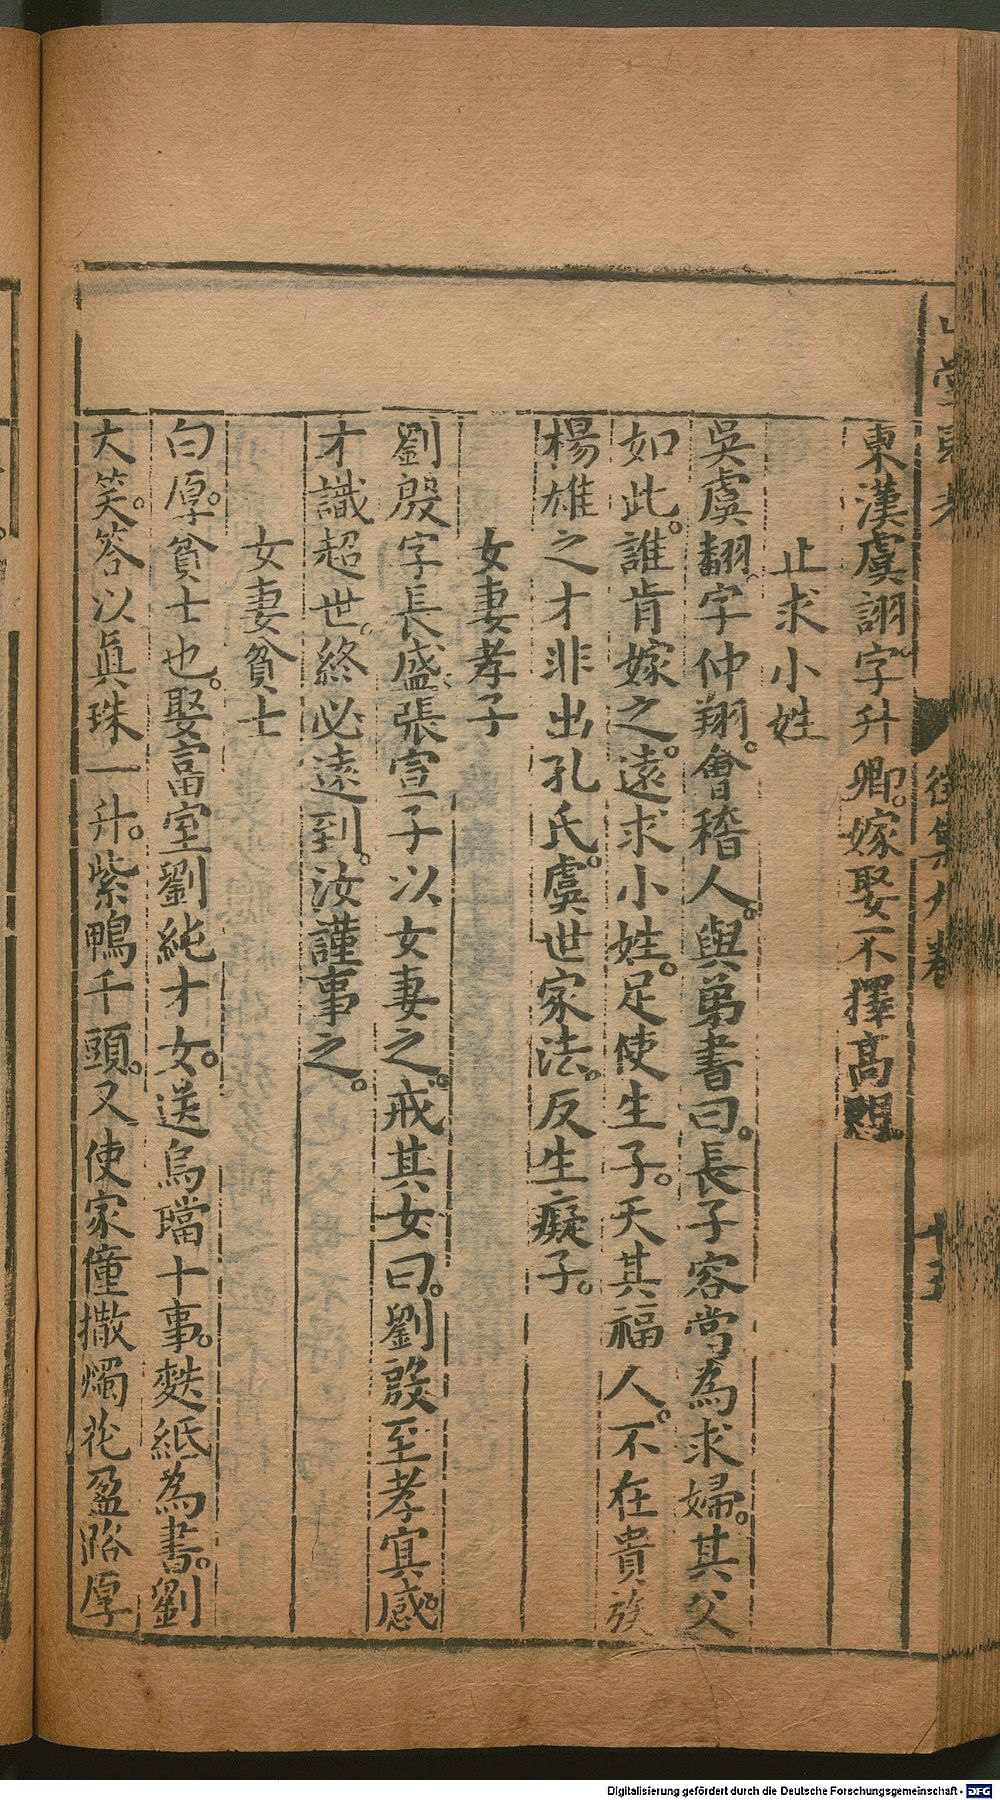 東漢虞詡字升卿。嫁娶不擇高門
止求小姓
吳虞翻字仲翔。會稽人。與弟書曰。長子容當為求婦。其父
如此。誰肯嫁之。遠求小姓。足使生子。天其福人。不在貴族
楊雄之才非出孔氏。虞世家法。反生癡子。
女妻孝子
劉殷字長盛張宣子以女妻之。戒其女曰。劉殷至孝冥感。
才識超世。終必遠到。汝謹事之。
女妻貧士
白厚。貧士也。娶富室劉純才女。送烏璫十事。麩紙為書。劉
大笑。答以眞珠一升。紫鴨千頭。又使家僮撒燭花盈路厚
Digitalisierung gefördert durch die Deutsche Forschungsgemeinschaft - DFG